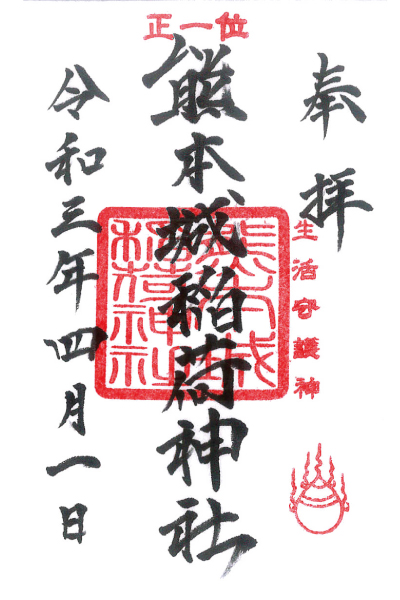 奉拝
生活守護神
正一位
熊本城稲荷神社
熊本城
稲荷神社
令和三年四月一日